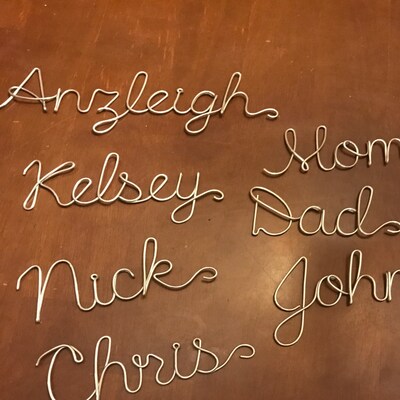 Anzleigh
Kelsey
Nick
Chris
Mom
Dad
John